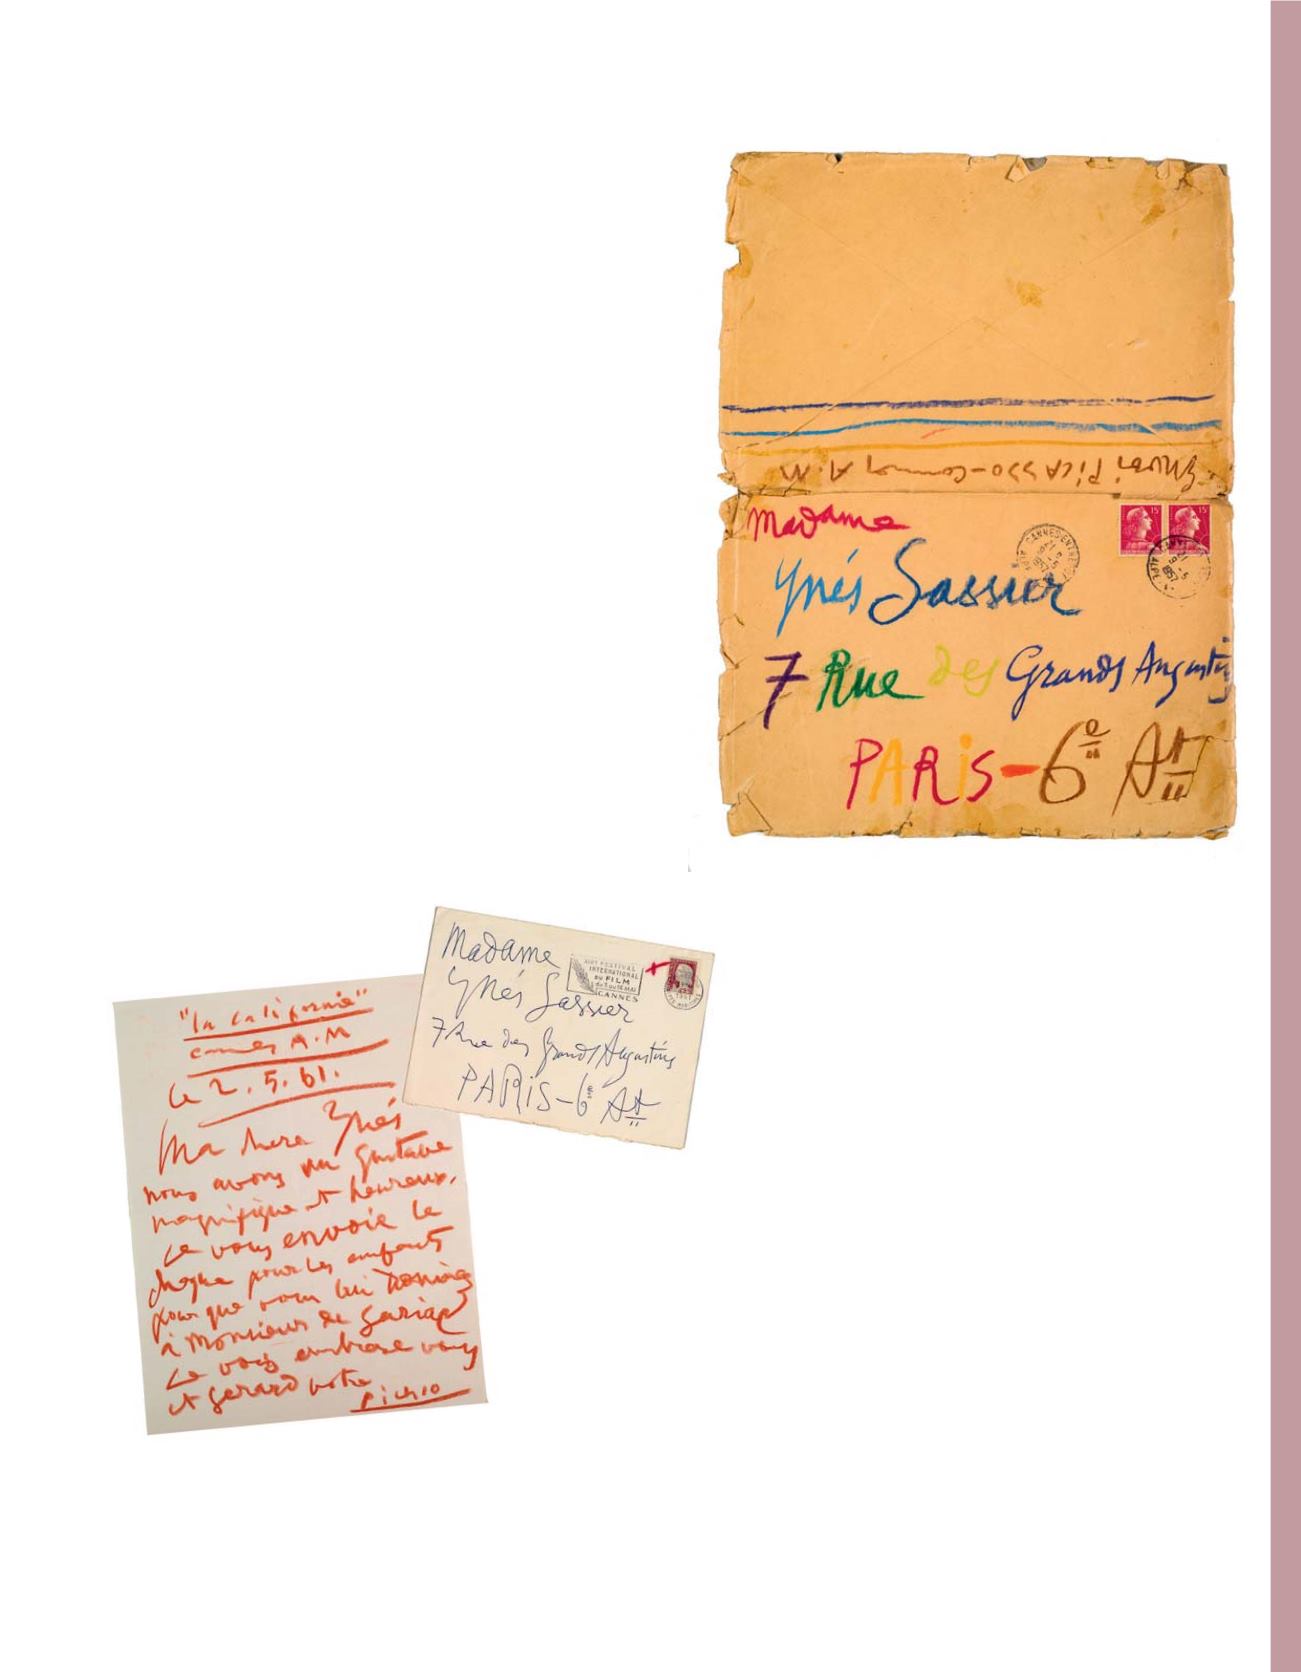 Envoi PICASSO - Cannes A.M
Madame
Ynés Sassier
7 Rue des Grands Augustins
PARiS - 6e At
15F
15
CANNES
1957
Madame
Ynés Sassier
7 Rue des Grands Augustins
PARiS - 6e At
XIVe FESTIVAL
INTERNATIONAL
DU FILM
du 3 au 18 MAI
CANNES
"la californie"
cannes A.M
le 2.5.61.
Ma chere Ynés
nous avons vu gustave
magnifique et heureux.
Je vous envoie le
cheque pour les enfants
pour que vous lui donniez
à Monsieur de
Je vous embrase vous
et gerard votre
Picasso